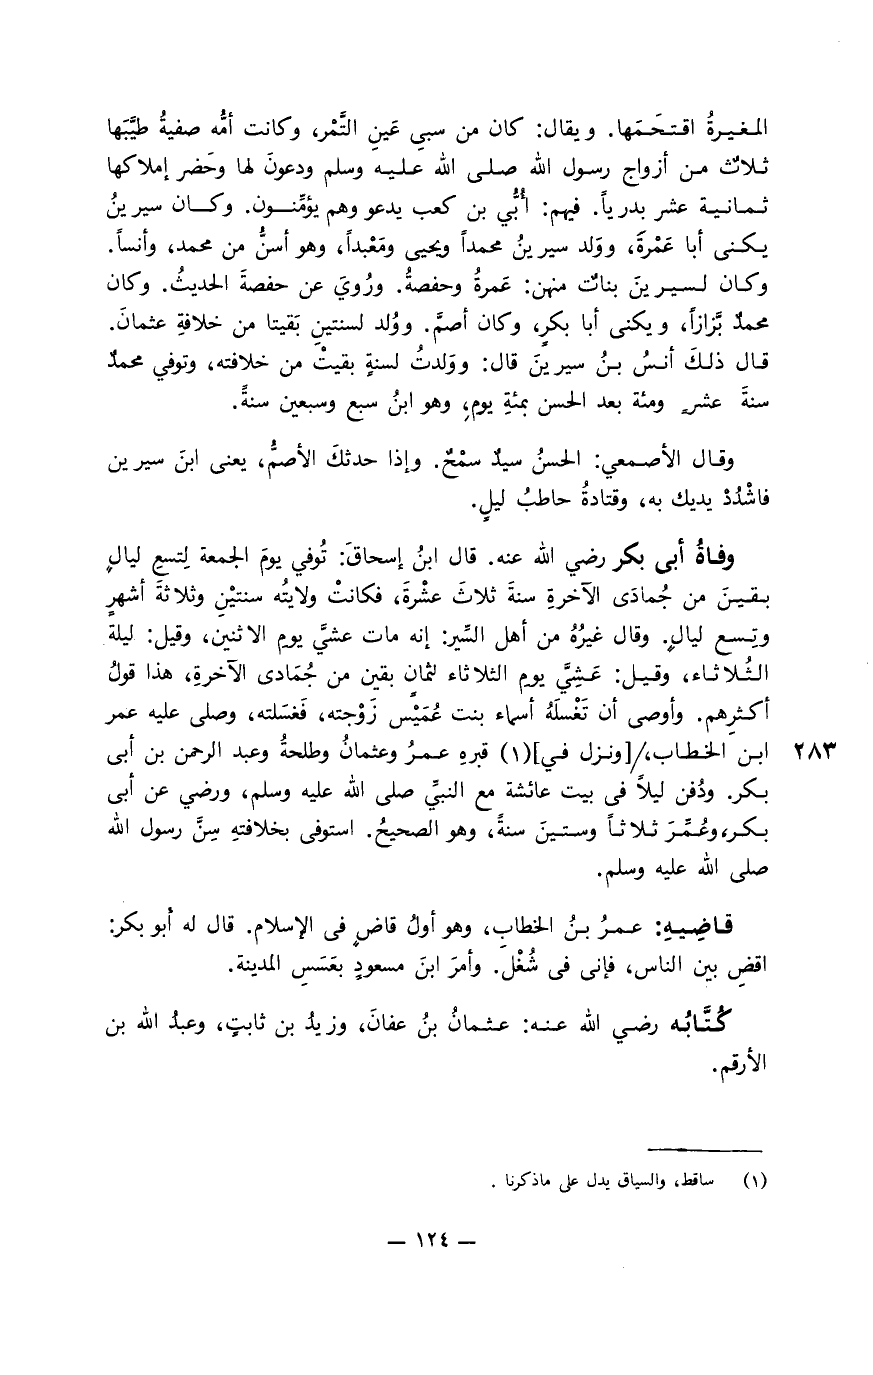 المغيرةُ اقتحَمَها. ويقال: كان من سبي عَينِ التَّمْر، وكانت أمُّه صفيةُ طيَّبَها
ثلاثٌ من أزواج رسول الله صلى الله عليه وسلم ودعونَ لها وحَضر إملاكها
ثمانية عشر بدرياً. فيهم: أُبُّي بن كعب يدعو وهم يؤمِّنون. وكان سيرينُ
يكنى أبا عَمْرةَ، ووَلد سيرينُ محمداً ويحيى ومَعْبداً، وهو أسنُّ من محمد، وأنساً.
وكان لسيرينَ بناتٌ منهن: عَمرةُ وحفصةُ. ورُويَ عن حفصةَ الحديثُ. وكان
محمدٌ بَّزازاً، ويكنى أبا بكرٍ، وكان أصمَّ. ووُلد لسنتينِ بَقيتا من خلافةِ عثمانَ.
قال ذلكَ أنسُ بنُ سيرينَ قال: ووَلدتُ لسنةٍ بقيتْ من خلافته، وتوفي محمدٌ
سنةَ عشرٍ ومئة بعد الحسن بمئةِ يومٍ، وهو ابنُ سبع وسبعين سنةً.
وقال الأصمعي: الحسنُ سيدٌ سمْحٌ. وإذا حدثكَ الأصمُّ، يعنى ابنَ سيرين
فاشْدُدْ يديك به، وقتادةُ حاطبُ ليلٍ.
وفاةُ أبى بكر رضي الله عنه. قال ابنُ إسحاقَ: تُوفي يومَ الجمعة لِتسعِ ليالٍ
بقينَ من جُمادَى الآخرةِ سنةَ ثلاثَ عشْرةَ، فكانتْ ولايتُه سنتيْنِ وثلاثةَ أشهرٍ
وتِسع ليالٍ. وقال غيرُهُ من أهل السِّير: إنه مات عشيَّ يوم الاثنين، وقيل: ليلةَ
الثُلاثاء، وقيل: عَشِيَّ يوم الثلاثاء لثمانٍ بقين من جُمَادى الآخرةِ، هذا قولُ
أكثرِهم. وأوصى أن تَغْسلَهُ أسماء بنت عُمَيْس زَوْجته، فَغسَلته، وصلى عليه عمر
ابن الخطاب،/[ونزل في](١) قبرهِ عمرُ وعثمانُ وطلحةُ وعبد الرحمن بن أبى ٢٨٣
بكر. ودُفن ليلاً فى بيت عائشة مع النبيِّ صلى الله عليه وسلم، ورضي عن أبى
بكر، وعُمِّرَ ثلاثاً وستينَ سنةً، وهو الصحيحُ. استوفى بخلافتهِ سِنَّ رسول الله
صلى الله عليه وسلم.
قاضِيهِ: عمرُ بنُ الخطابِ، وهو أولُ قاضٍ فى الإسلام. قال له أبو بكر:
اقضِ بين الناس، فإنى فى شُغْل. وأمرَ ابنَ مسعودٍ بعَسَسِ المدينة.
كُتَّابُه رضي الله عنه: عثمانُ بنُ عفانَ، وزيدُ بن ثابتٍ، وعبدُ الله بن
الأرقم.
(١) ساقط، والسياق يدل على ماذكرنا .
— ١٢٤ —